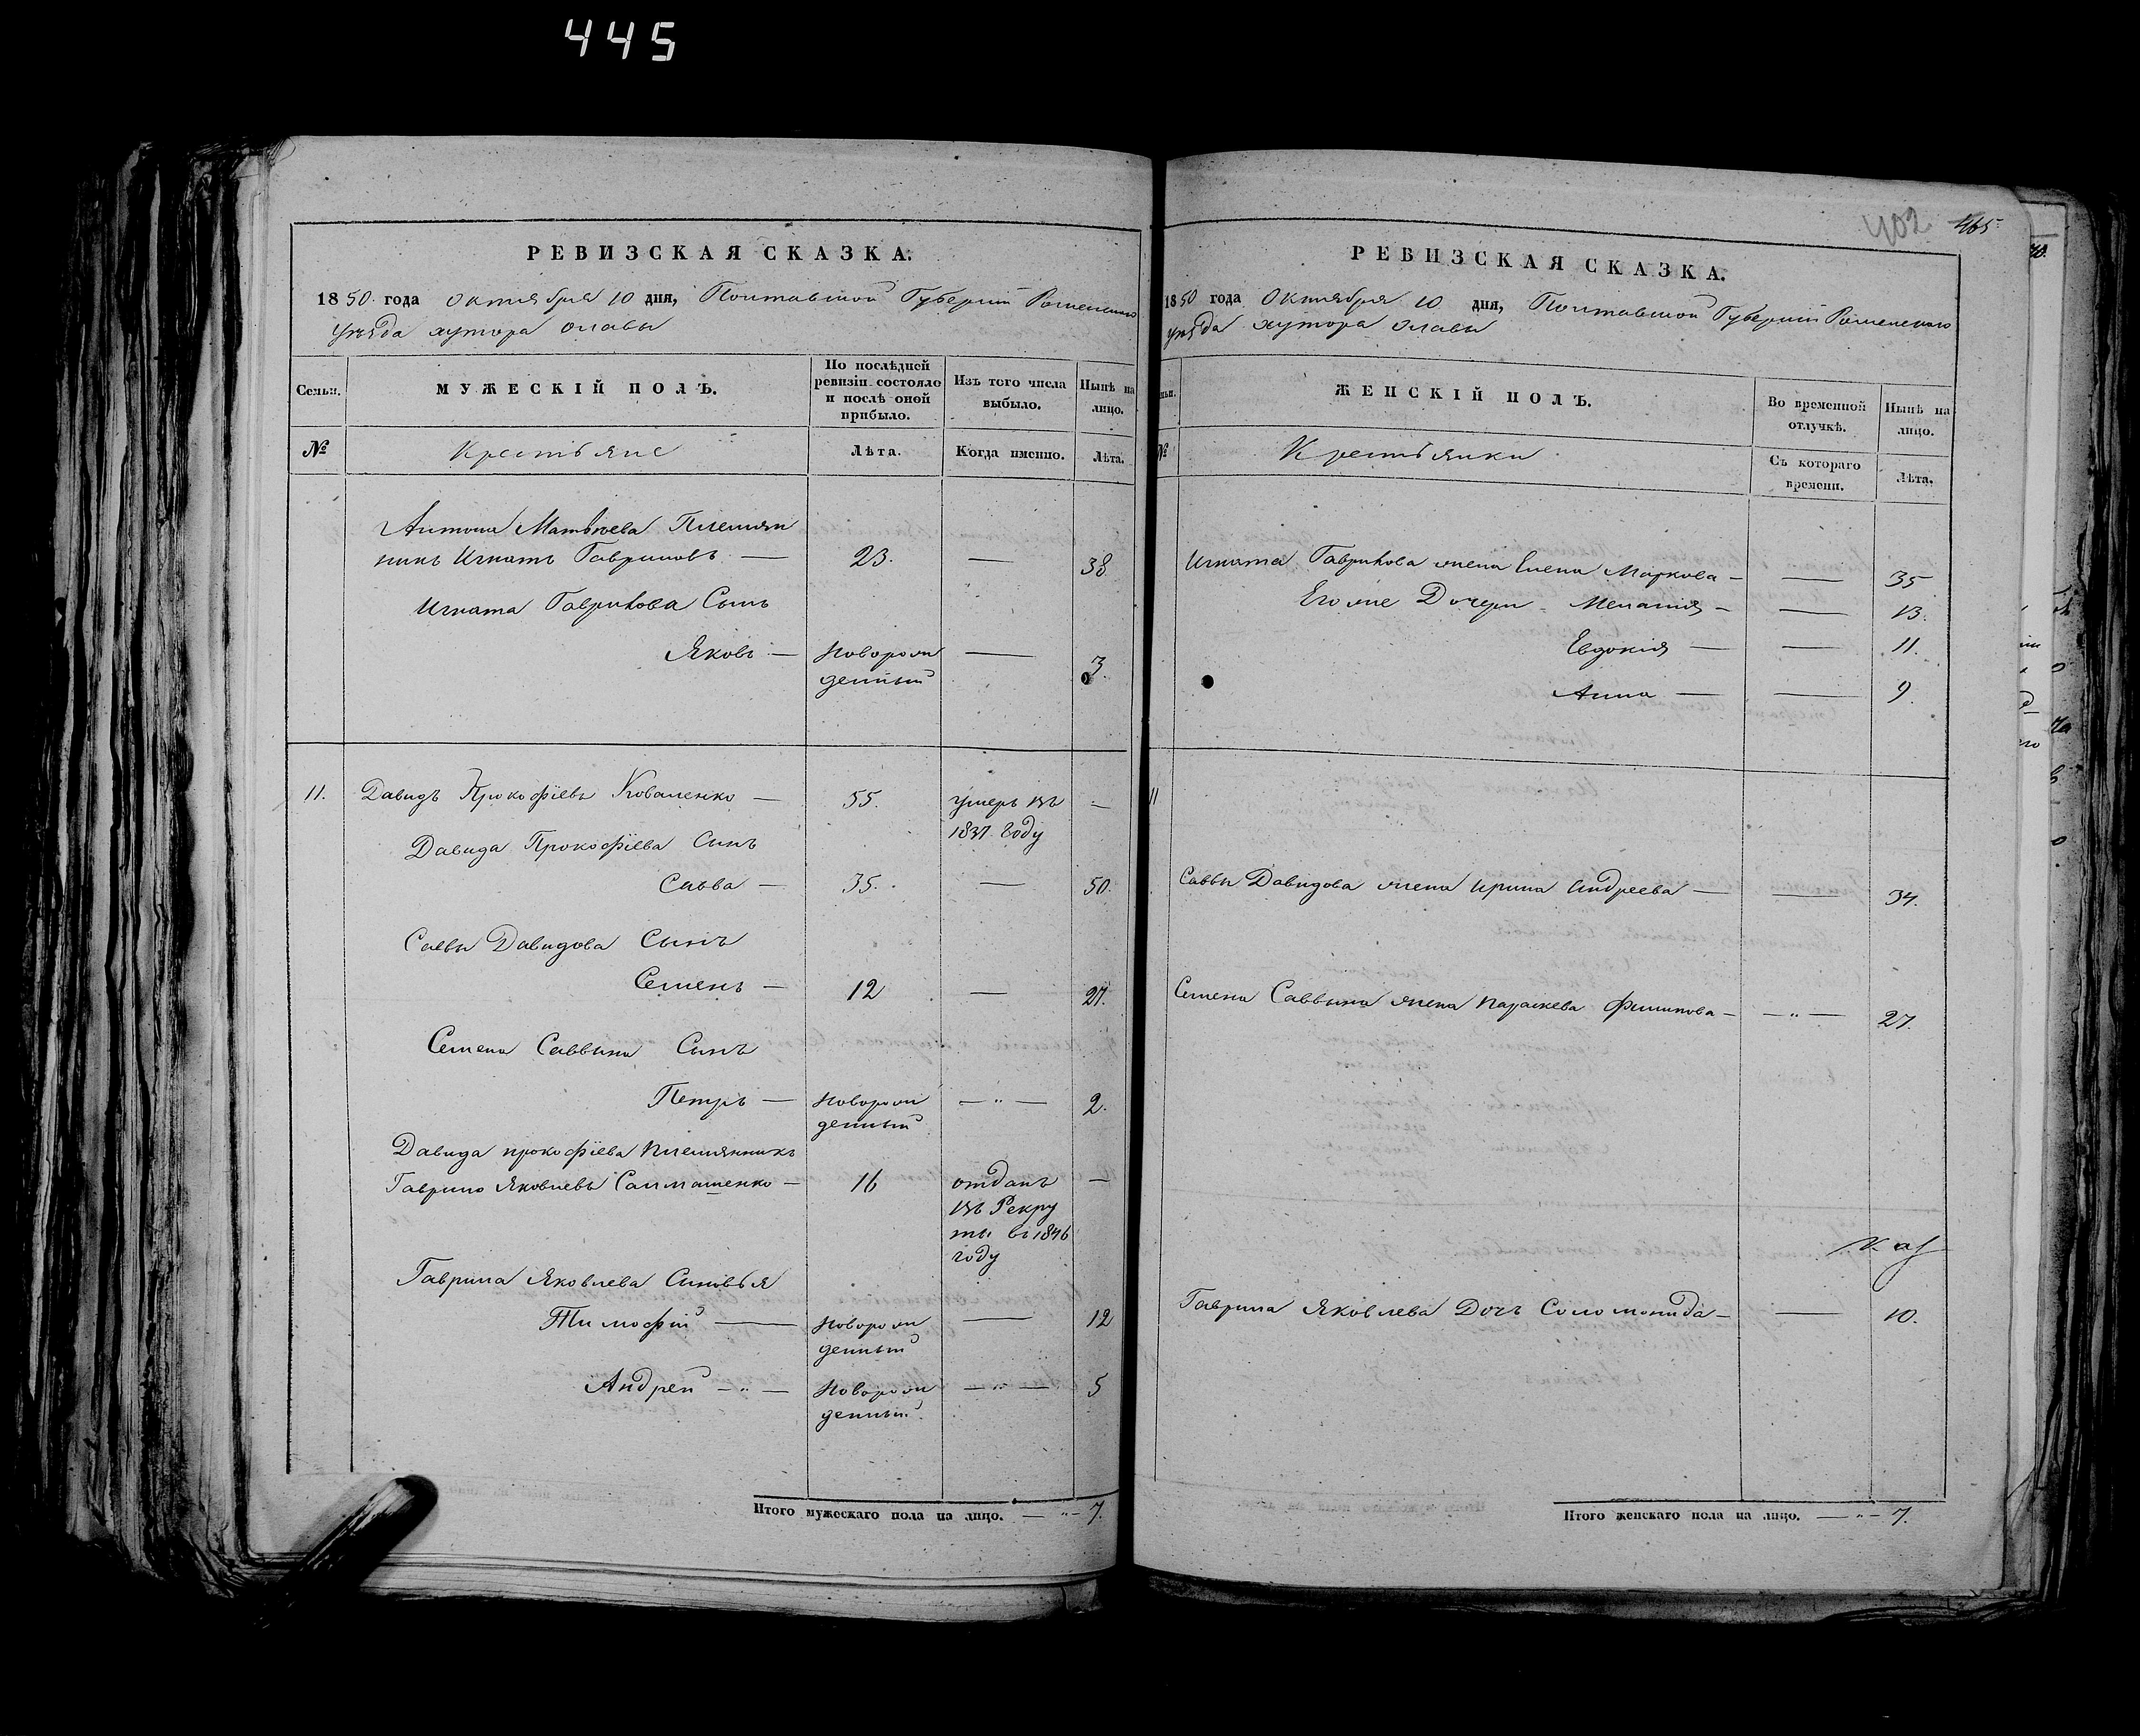 445
РЕВИЗСКАЯ СКАЗКА.
1850 года Октября 10 дня, Полтавской Губерніи Роменскаго
уѣзда хутора Олавы
Семьи. МУЖЕСКІЙ ПОЛЪ. По послѣдней ревизіи состояло и послѣ оной прибыло. Изъ того числа выбыло. Нынѣ на лицо.
№ Крестьяне Лѣта. Когда именно. Лѣта.
Антона Матвѣева Племян
никъ Игнатъ Гавриловъ — 23. — 38
Игната Гаврилова Сынъ
Яковъ — Новорож — 3.
денный
11. Давидъ Прокофіевъ Коваленко — 55. умеръ въ —
1837 году
Давида Прокофіева Сынъ
Савва — 35. — 50.
Саввы Давидова Сынъ
Семенъ — 12 — 27.
Семена Саввина Сынъ
Петръ — Новорож — " — 2.
денный
Давида прокофіева племянникъ
Гаврило Яковлевъ Салмашенко — 16 отданъ —
въ Рекру
ты въ 1846
году
Гаврила Яковлева Сыновья
Тимофій — Новорож — 12
денный
Андрей — " — Новорож — " — 5
денный.
Итого мужескаго пола на лицо. — " — 7.
402 465
РЕВИЗСКАЯ СКАЗКА.
1850 года Октября 10 дня, Полтавской Губерніи Роменскаго
уѣзда хутора Олавы
ЖЕНСКІЙ ПОЛЪ. Во временной отлучкѣ. Нынѣ на лицо.
№ Крестьянки Съ котораго времени. Лѣта.
Игната Гаврилова жена Елена Маркова — — 35
Его же Дочери Меланія — — 13.
Евдокія — — 11.
Анна — — 9.
11
Саввы Давидова жена Ирина Андреева — — 34.
Семена Саввина жена Параскева Филипова — — " — 27.
Гаврила Яковлева Дочь Соломонида — — 10.
Итого женскаго пола на лицо. — " — 7.